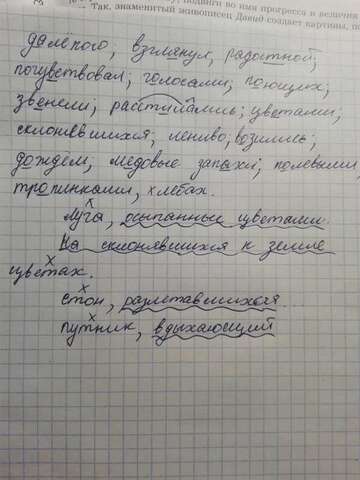 подвиги во имя прогресса и величия
— Так, знаменитый живописец Давид создает картины, по
далекого, взглянул, радостной,
почувствовал; голосами; поющих;
звенели; расступались; цветами;
склонявшихся; лениво; возились;
дождём; медовые запахи; полевыми,
тропинками, хлебах.
Луга, осыпанные цветами.
На склонявшихся к земле
цветах.
стон, разлетавшихся.
путник, вдыхающий